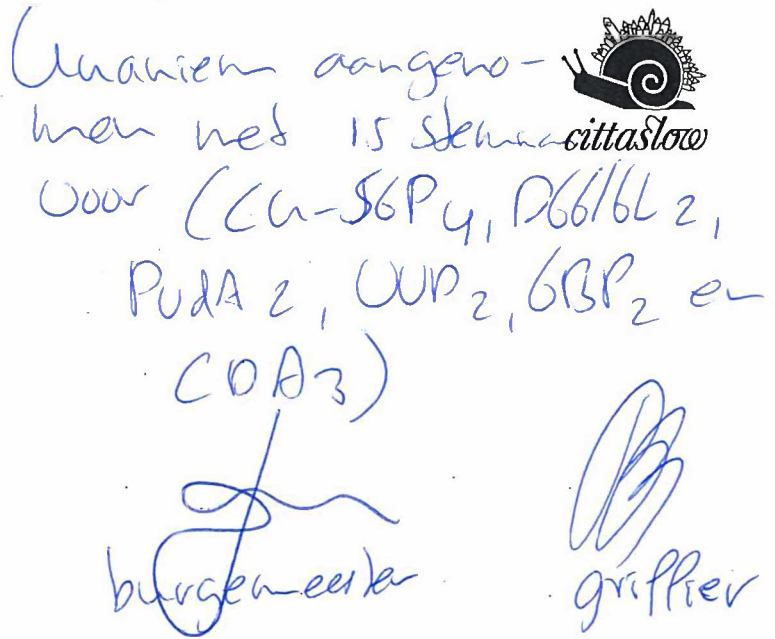 Unaniem aangeno-
men met 15 stemmen
cittaslow
voor (CU-SGP 4, D66/GL 2,
PvdA 2, VVD 2, GBP 2 en
CDA 3)
burgemeester
griffier